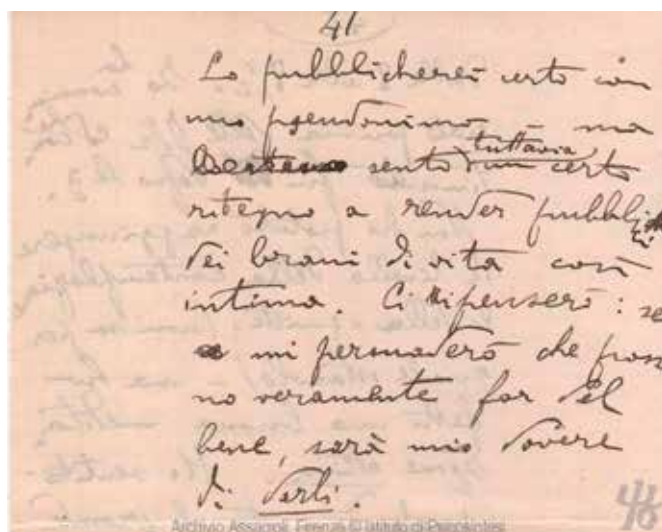 41
Lo pubblicherei certo con
uno pseudonimo – ma
sento tuttavia un certo
ritegno a render pubblici
dei brani di vita così
intima. Ci ripenserò: se
mi persuaderò che posso
no veramente far del
bene, sarà mio dovere
di darli.
46
Archivio Assagioli, Firenze © Istituto di Psicosintesi